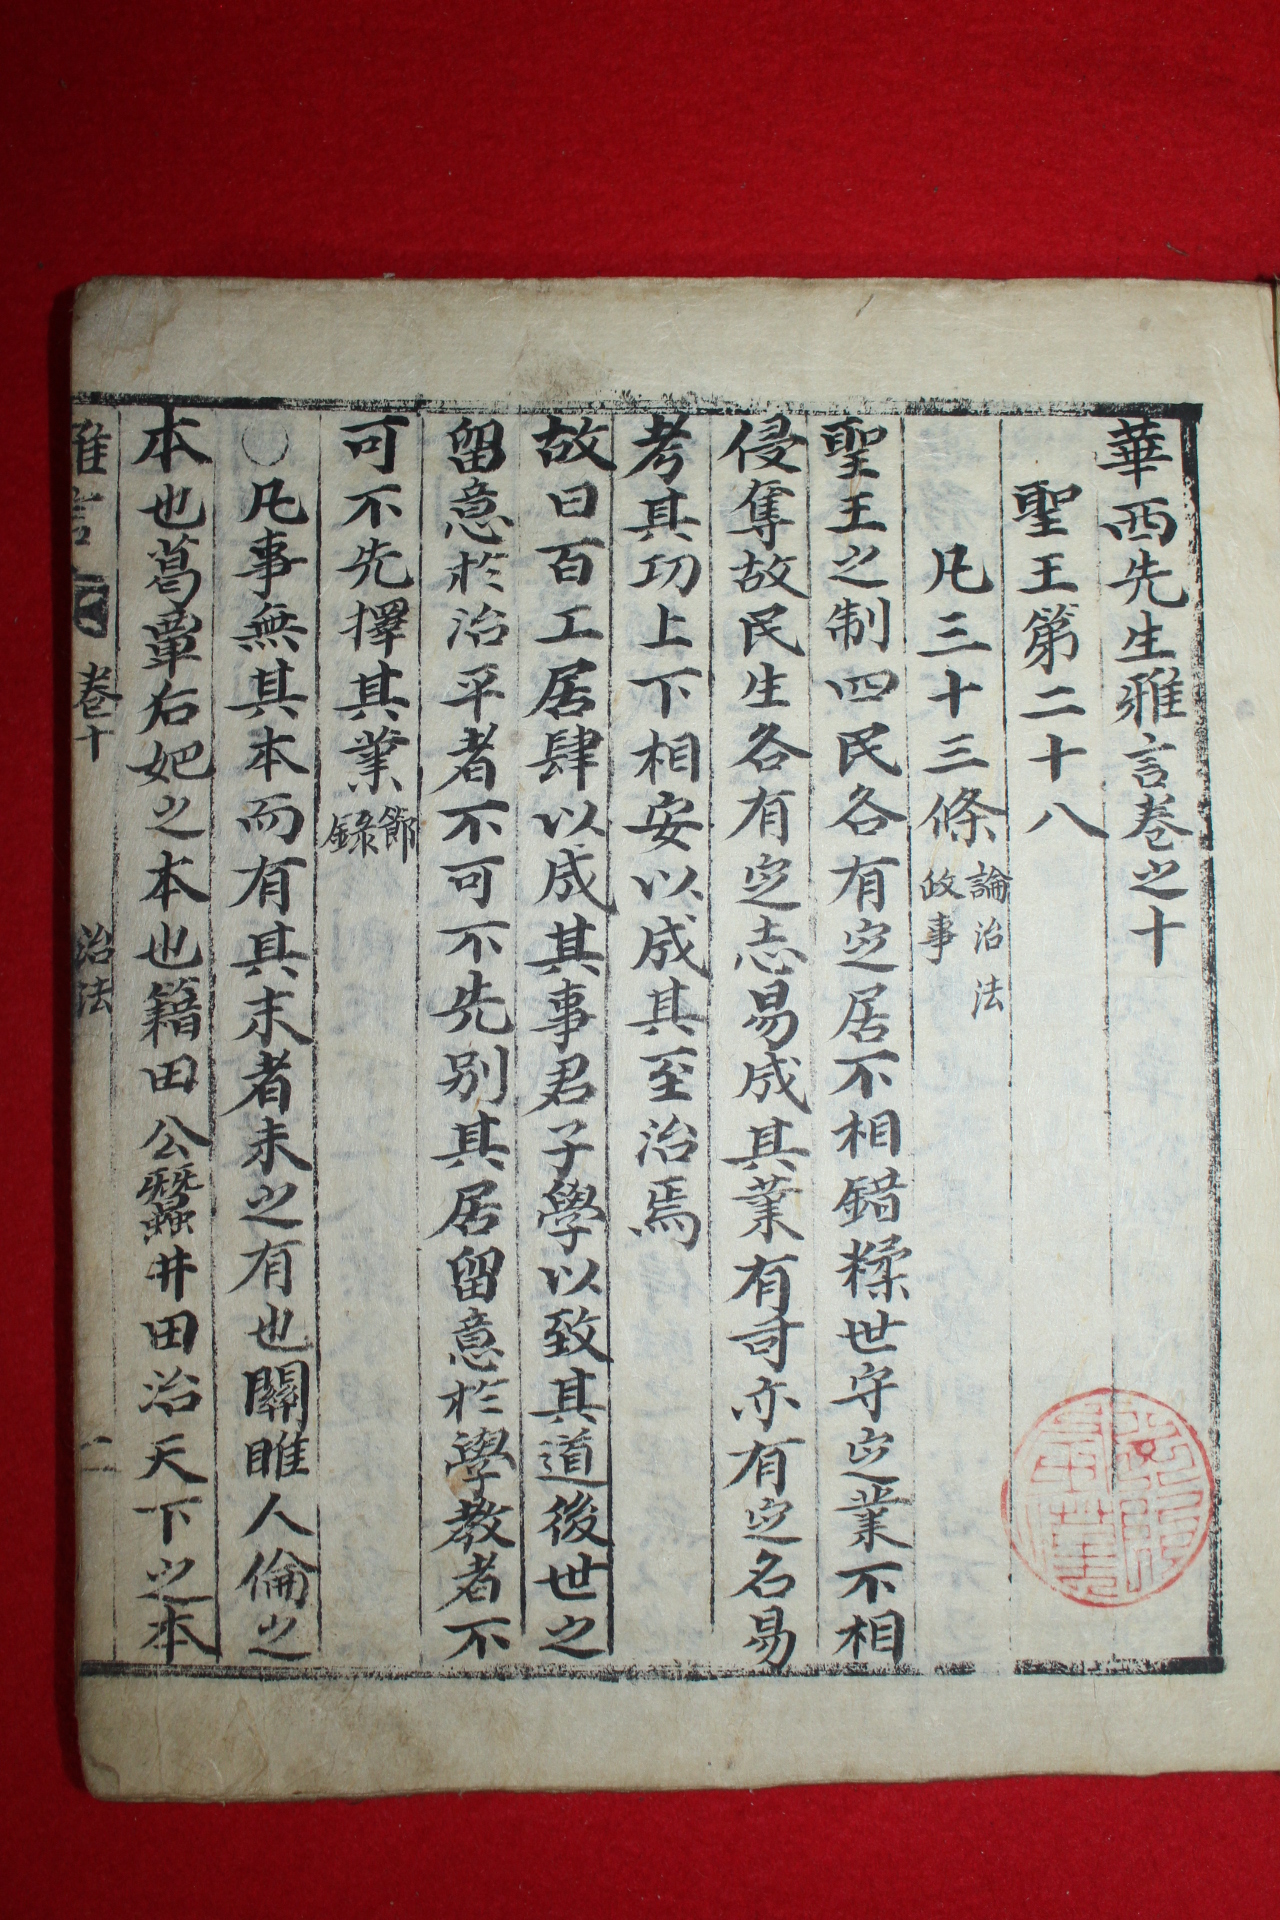 華西先生雅言卷之十
聖王第二十八
凡三十三條 論治法 政事
聖王之制四民各有定居不相錯糅世守定業不相
侵奪故民生各有定志易成其業有司亦有定名易
考其功上下相安以成其至治焉
故曰百工居肆以成其事君子學以致其道後世之
留意於治平者不可不先別其居留意於學教者不
可不先擇其業 節錄
○凡事無其本而有其末者未之有也關雎人倫之
本也葛覃后妃之本也籍田公蠶井田治天下之本
雅言 卷十 治法 一